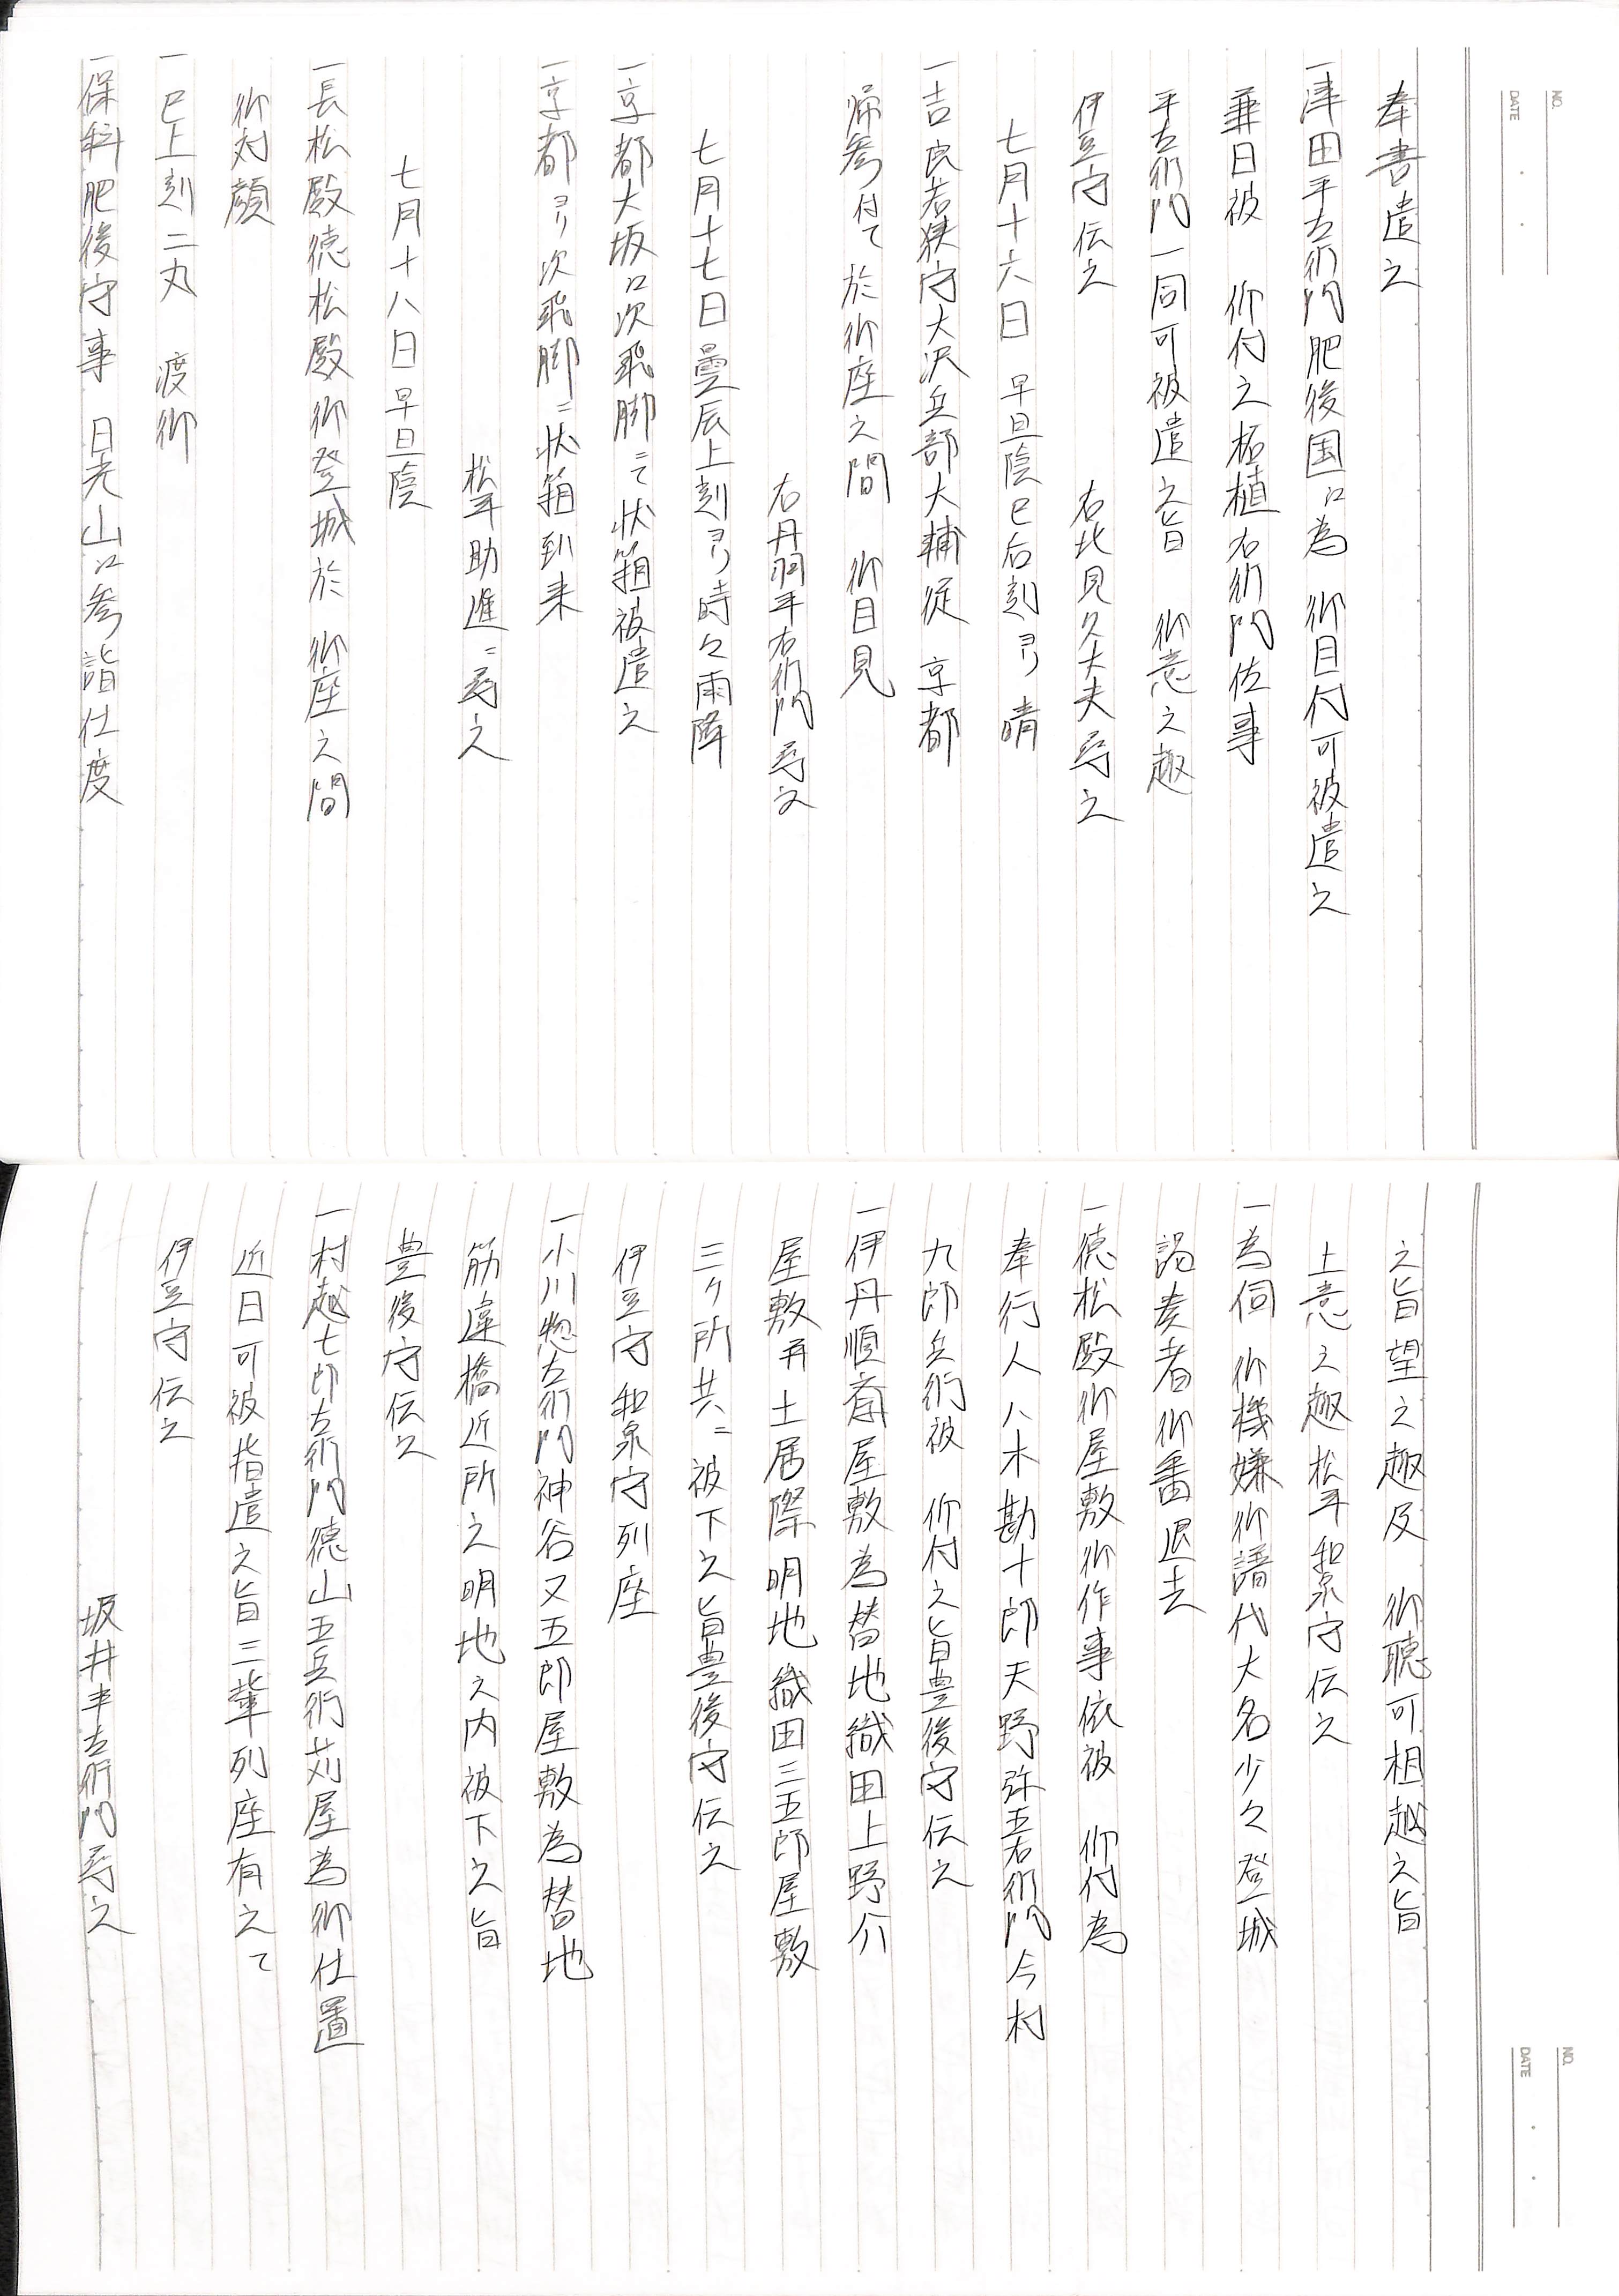 奉書遣之
一津田平左衛門肥後国江為 御目付可被遣之
兼日被 仰付之柘植右衛門佐事
平左衛門一同可被遣之旨 御意之趣
伊豆守伝之 右北見久大夫尋之
七月十六日 早旦陰巳后刻ヨリ晴
一吉良若狭守大沢兵部大輔従 京都
帰参付て於御座之間 御目見
右丹羽平右衛門尋之
七月十七日曇辰上刻ヨリ時々雨降
一京都大坂江次飛脚ニて状箱被遣之
一京都ヨリ次飛脚ニ状箱到来
松平助進ニ尋之
七月十八日早旦陰
一長松殿徳松殿御登城於 御座之間
御対顔
一巳上刻二丸 渡御
一保科肥後守事 日光山江参詣仕度
之旨望之趣及 御聴可相越之旨
上意之趣松平和泉守伝之
一為伺 御機嫌御譜代大名少々登城
謁奏者御番退去
一徳松殿御屋敷御作事依被 仰付為
奉行人八木勘十郎天野弥五右衛門今村
九郎兵衛被 仰付之旨豊後守伝之
一伊丹順斎屋敷為替地織田上野介
屋敷并土居際明地織田三五郎屋敷
三ヶ所共ニ被下之旨豊後守伝之
伊豆守和泉守列座
一小川惣左衛門神谷又五郎屋敷為替地
筋違橋近所之明地之内被下之旨
豊後守伝之
一村越七郎左衛門徳山五兵衛苅屋為御仕置
近日可被指遣之旨三輩列座有之て
伊豆守伝之
坂井半左衛門尋之
NO.
DATE
NO.
DATE